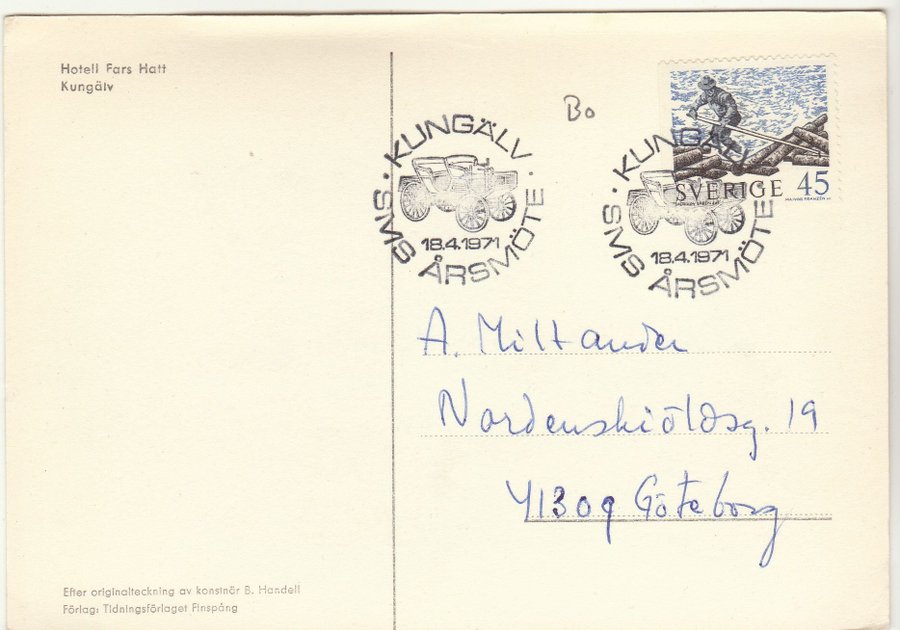 Hotell Fars Hatt
Kungälv
Bo
· KUNGÄLV ·
SMS ÅRSMÖTE
18.4.1971
· KUNGÄLV
SMS ÅRSMÖTE
18.4.1971
SVERIGE 45
A. Miltander
Nordenskiöldsg. 19
41309 Göteborg
Efter originalteckning av konstnär B. Handell
Förlag: Tidningsförlaget Finspång